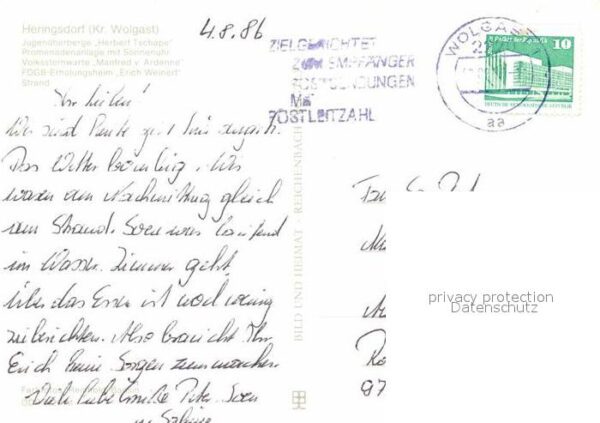 Heringsdorf (Kr. Wolgast)
Jugendherberge „Herbert Tschäpe"
Promenadenanlage mit Sonnenuhr
Volkssternwarte „Manfred v. Ardenne"
FDGB-Erholungsheim „Erich Weinert"
Strand
4.8.86
ZIELGERICHTET
ZUM EMPFÄNGER
POSTSENDUNGEN
MIT
POSTLEITZAHL
WOLGAST
aa
10
Ihr Lieben!
Wir sind heute gut hier
Das Wetter Wir
waren am Nachmittag gleich
am Strand. Sven war laufend
im Wasser. Zimmer geht.
Über das Essen ist noch wenig
zu berichten. Also braucht Ihr
Euch keine Sorgen zu machen.
Viele liebe Grüße Peter, Sven
BILD UND HEIMAT REICHENBACH
privacy protection
Datenschutz